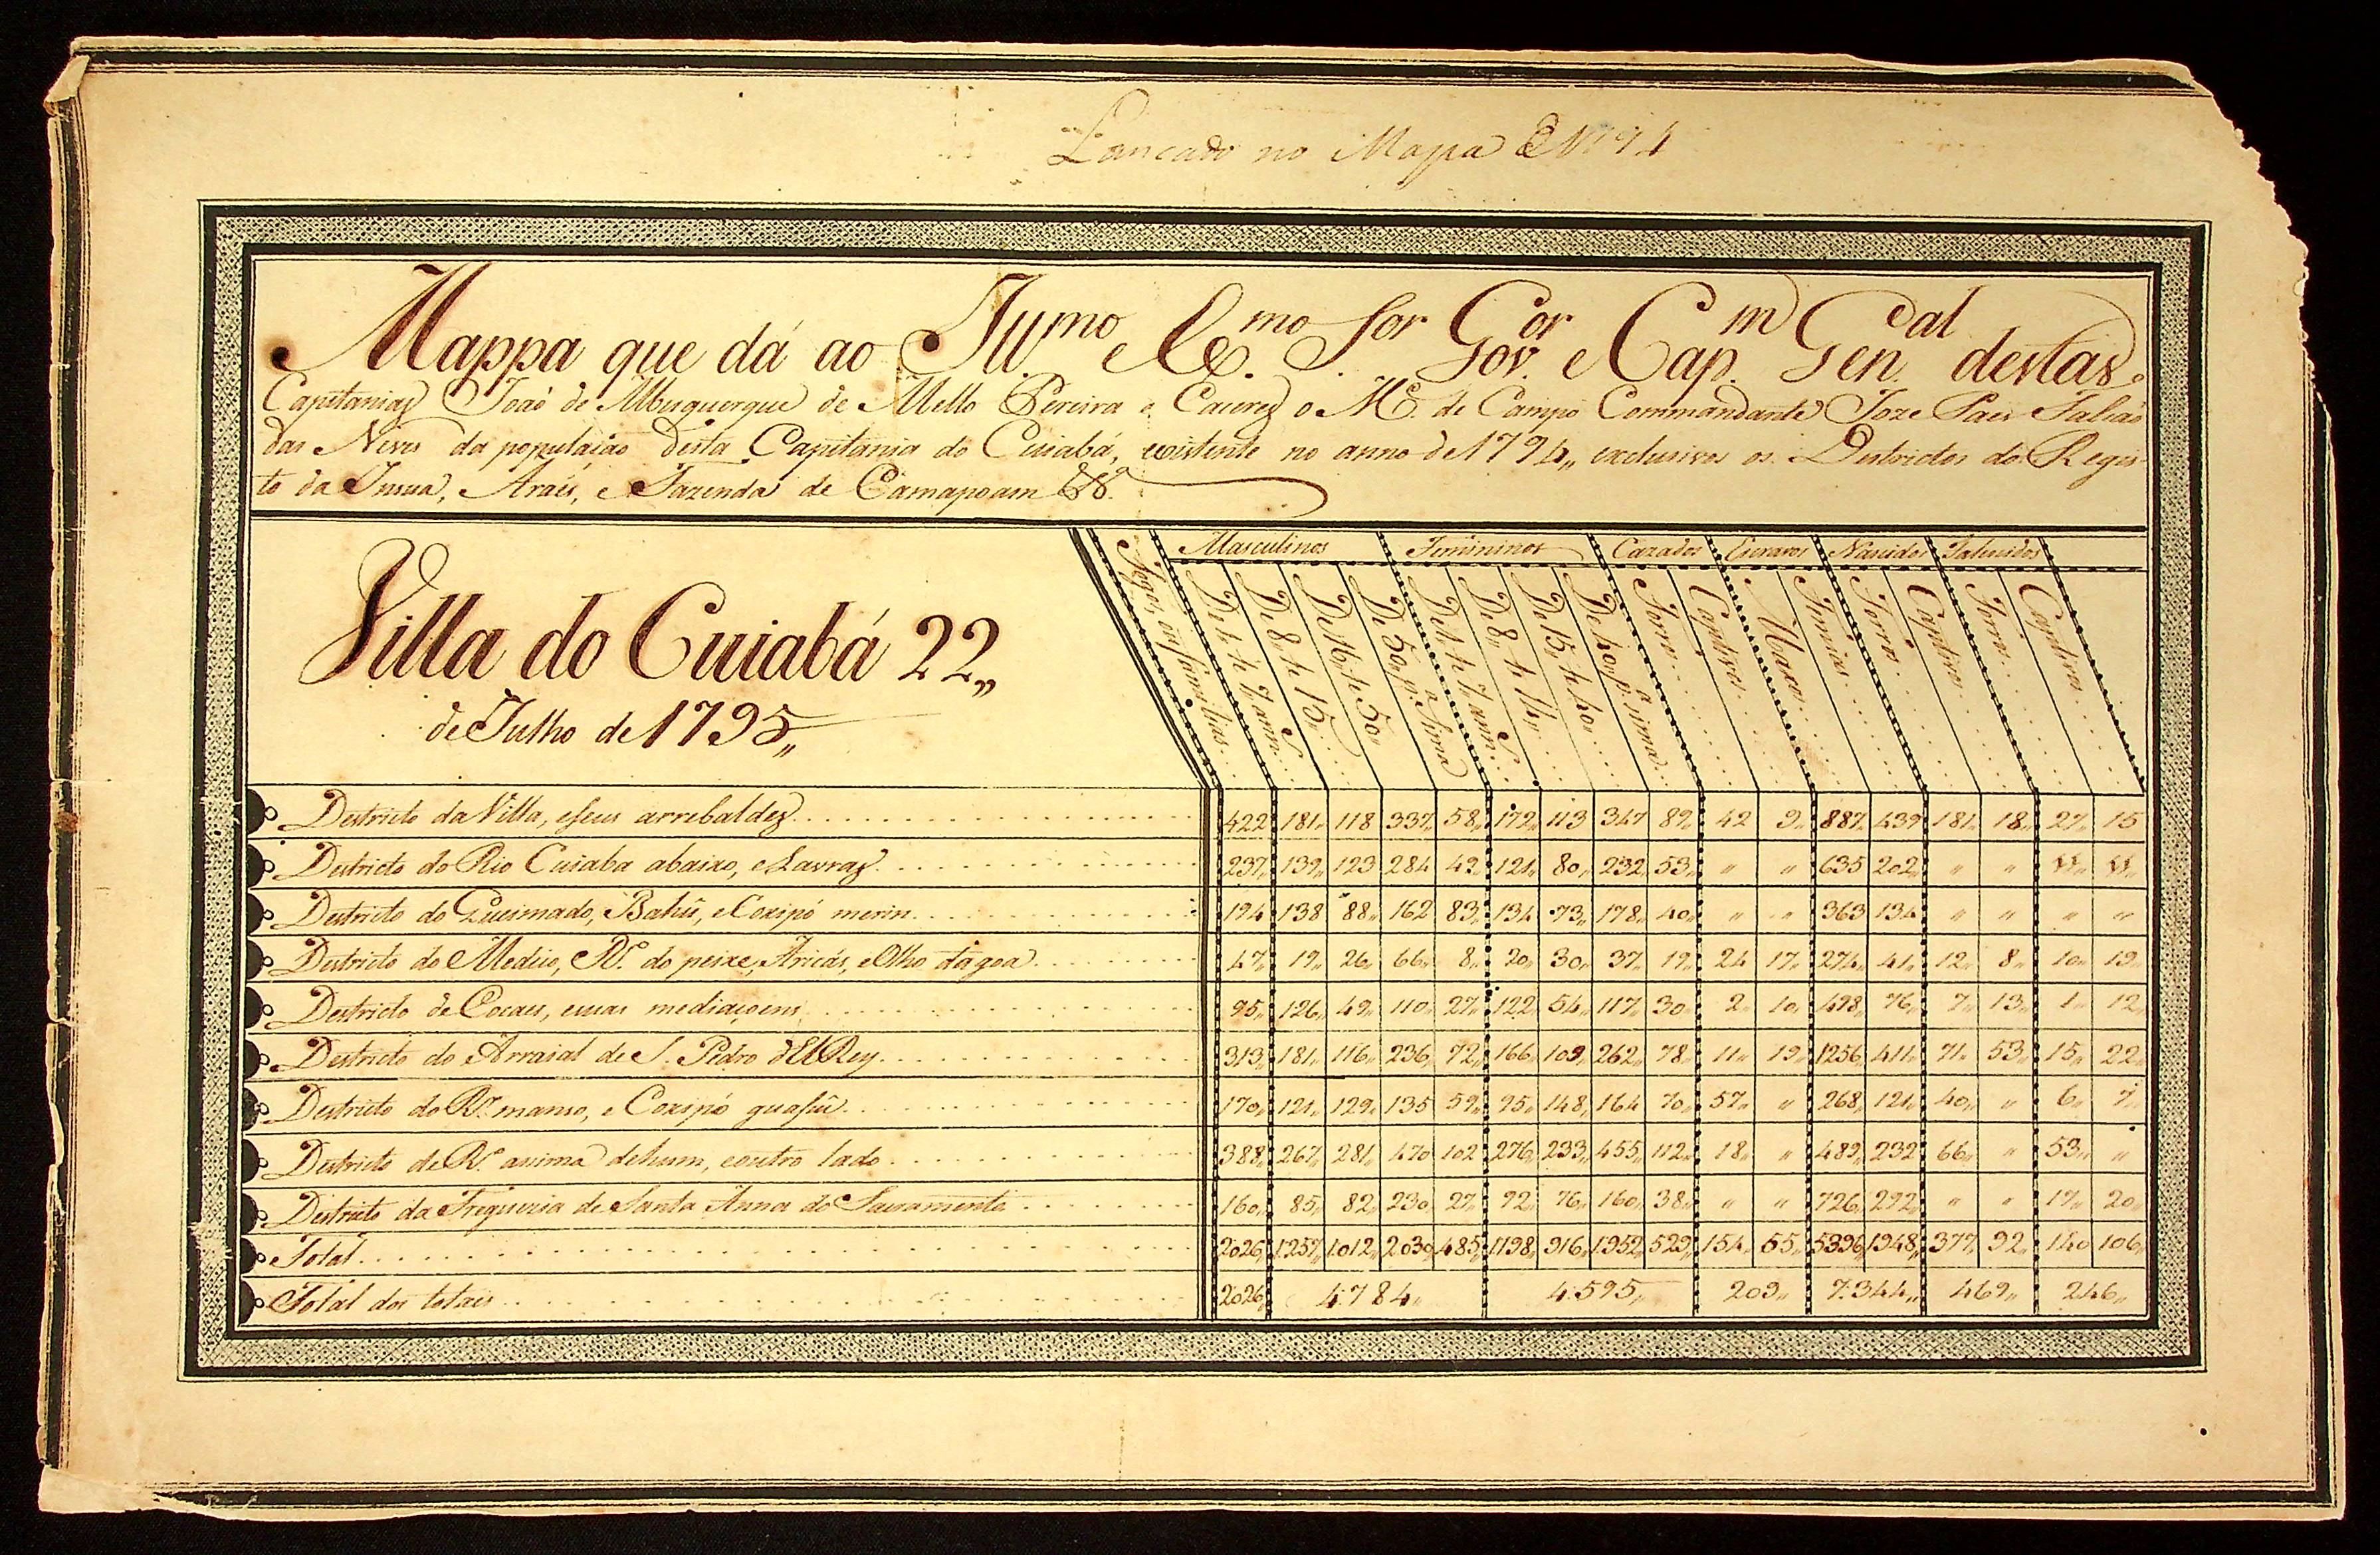 Lancado no Mappa
Mappa que dá ao Illmo e Exmo Sor Govor e Capm Genal destas
Capitanias João de Albuquerque de Mello Pereira e Caceres o Me. de Campo Commandante Joze Paes Falcão
das Neves da população desta Capitania do Cuiabá, existente no anno de 1794,, exclusivos os Destrictos do Regis
to da Insua, Araés, e Fazenda de Camapoam &ª.
Villa do Cuiabá 22,,
de Julho de 1795,,
Masculinos Femininos Cazados Escravos Nascidos Falecidos
Fogos, ou familias
De 1. te 7. ann.s
De 8,, te 15
De 16,, te 50,,
De 50,, pª. sima
De 1. te 7. ann.s
De 8,, te 14,,
De 15,, te 40
De 40,, pª. sima
Forros
Captivos
Maxos
Femias
Forros
Captivos
Forros
Captivos
Destricto da Villa, e seus arrebaldes 422 181 118 337 58 172 113 347 89 42 9 887 439 181 18 27 15
Destricto do Rio Cuiaba abaixo, e Lavras 237 139 123 284 49 121 80 232 53 " " 635 202 " "
Destricto do Queimado, Bahû, e Coxipó merin 194 138 88 162 83 134 73 178 40 " " 363 134 " " " "
Destricto do Medico, Rº. do peixe, Aricás, e Olho dágoa 47 19 26 66 8 20 30 37 19 24 17 274 41 12 8 10 19
Destricto de Cocaes, e suas mediaçoens 95 126 49 110 27 122 54 117 30 2 10 498 76 7 13 1 12
Destricto do Arraial de S. Pedro d'El Rey 313 181 116 236 72 166 109 262 78 11 19 1256 411 71 53 15 22
Destricto do Rº. manso, e Coxipó guasû 170 121 129 135 59 95 148 164 70 57 " 268 121 40 " 6 7
Destricto de Rº. asima de hum, e outro lado 388 267 281 470 102 276 233 455 112 18 " 489 232 66 " 53 "
Destricto da Freguezia de Santa Anna do Sacramento 160 85 82 230 27 92 76 160 38 " " 726 292 " " 17 20
Total 2026 1257 1012 2030 485 1198 916 1952 529 154 55 5396 1948 377 92 140 106
Total dos totaes 2026 4784 4595 209 7344 469 246